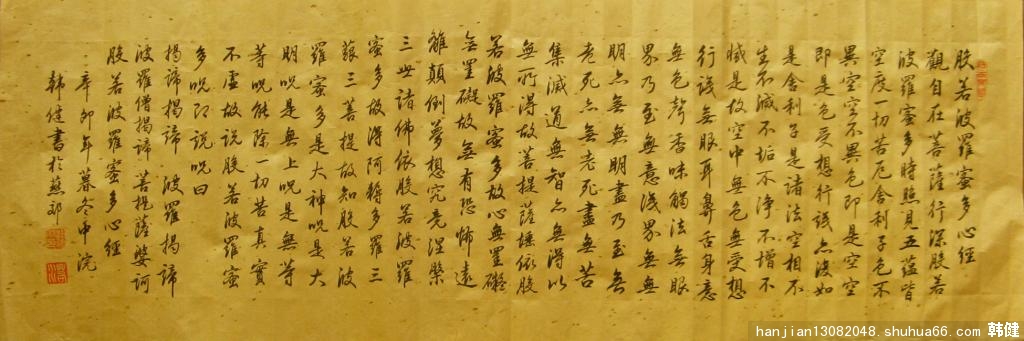 般若波羅蜜多心經
觀自在菩薩行深般若
波羅蜜多時照見五蘊皆
空度一切苦厄舍利子色不
異空空不異色色即是空空
即是色受想行識亦復如
是舍利子是諸法空相不
生不滅不垢不淨不增不
減是故空中無色無受想
行識無眼耳鼻舌身意
無色聲香味觸法無眼
界乃至無意識界無無
明亦無無明盡乃至無
老死亦無老死盡無苦
集滅道無智亦無得以
無所得故菩提薩埵依般
若波羅蜜多故心無罣礙
無罣礙故無有恐怖遠
離顛倒夢想究竟涅槃
三世諸佛依般若波羅
蜜多故得阿耨多羅三
藐三菩提故知般若波
羅蜜多是大神呪是大
明呪是無上呪是無等
等呪能除一切苦真實
不虛故說般若波羅蜜
多呪即說呪曰
揭諦揭諦 波羅揭諦
波羅僧揭諦 菩提薩婆訶
般若波羅蜜多心經
辛卯年暮冬中浣
韓健書於燕郊
hanjian13082048.shuhua66.com 韩健